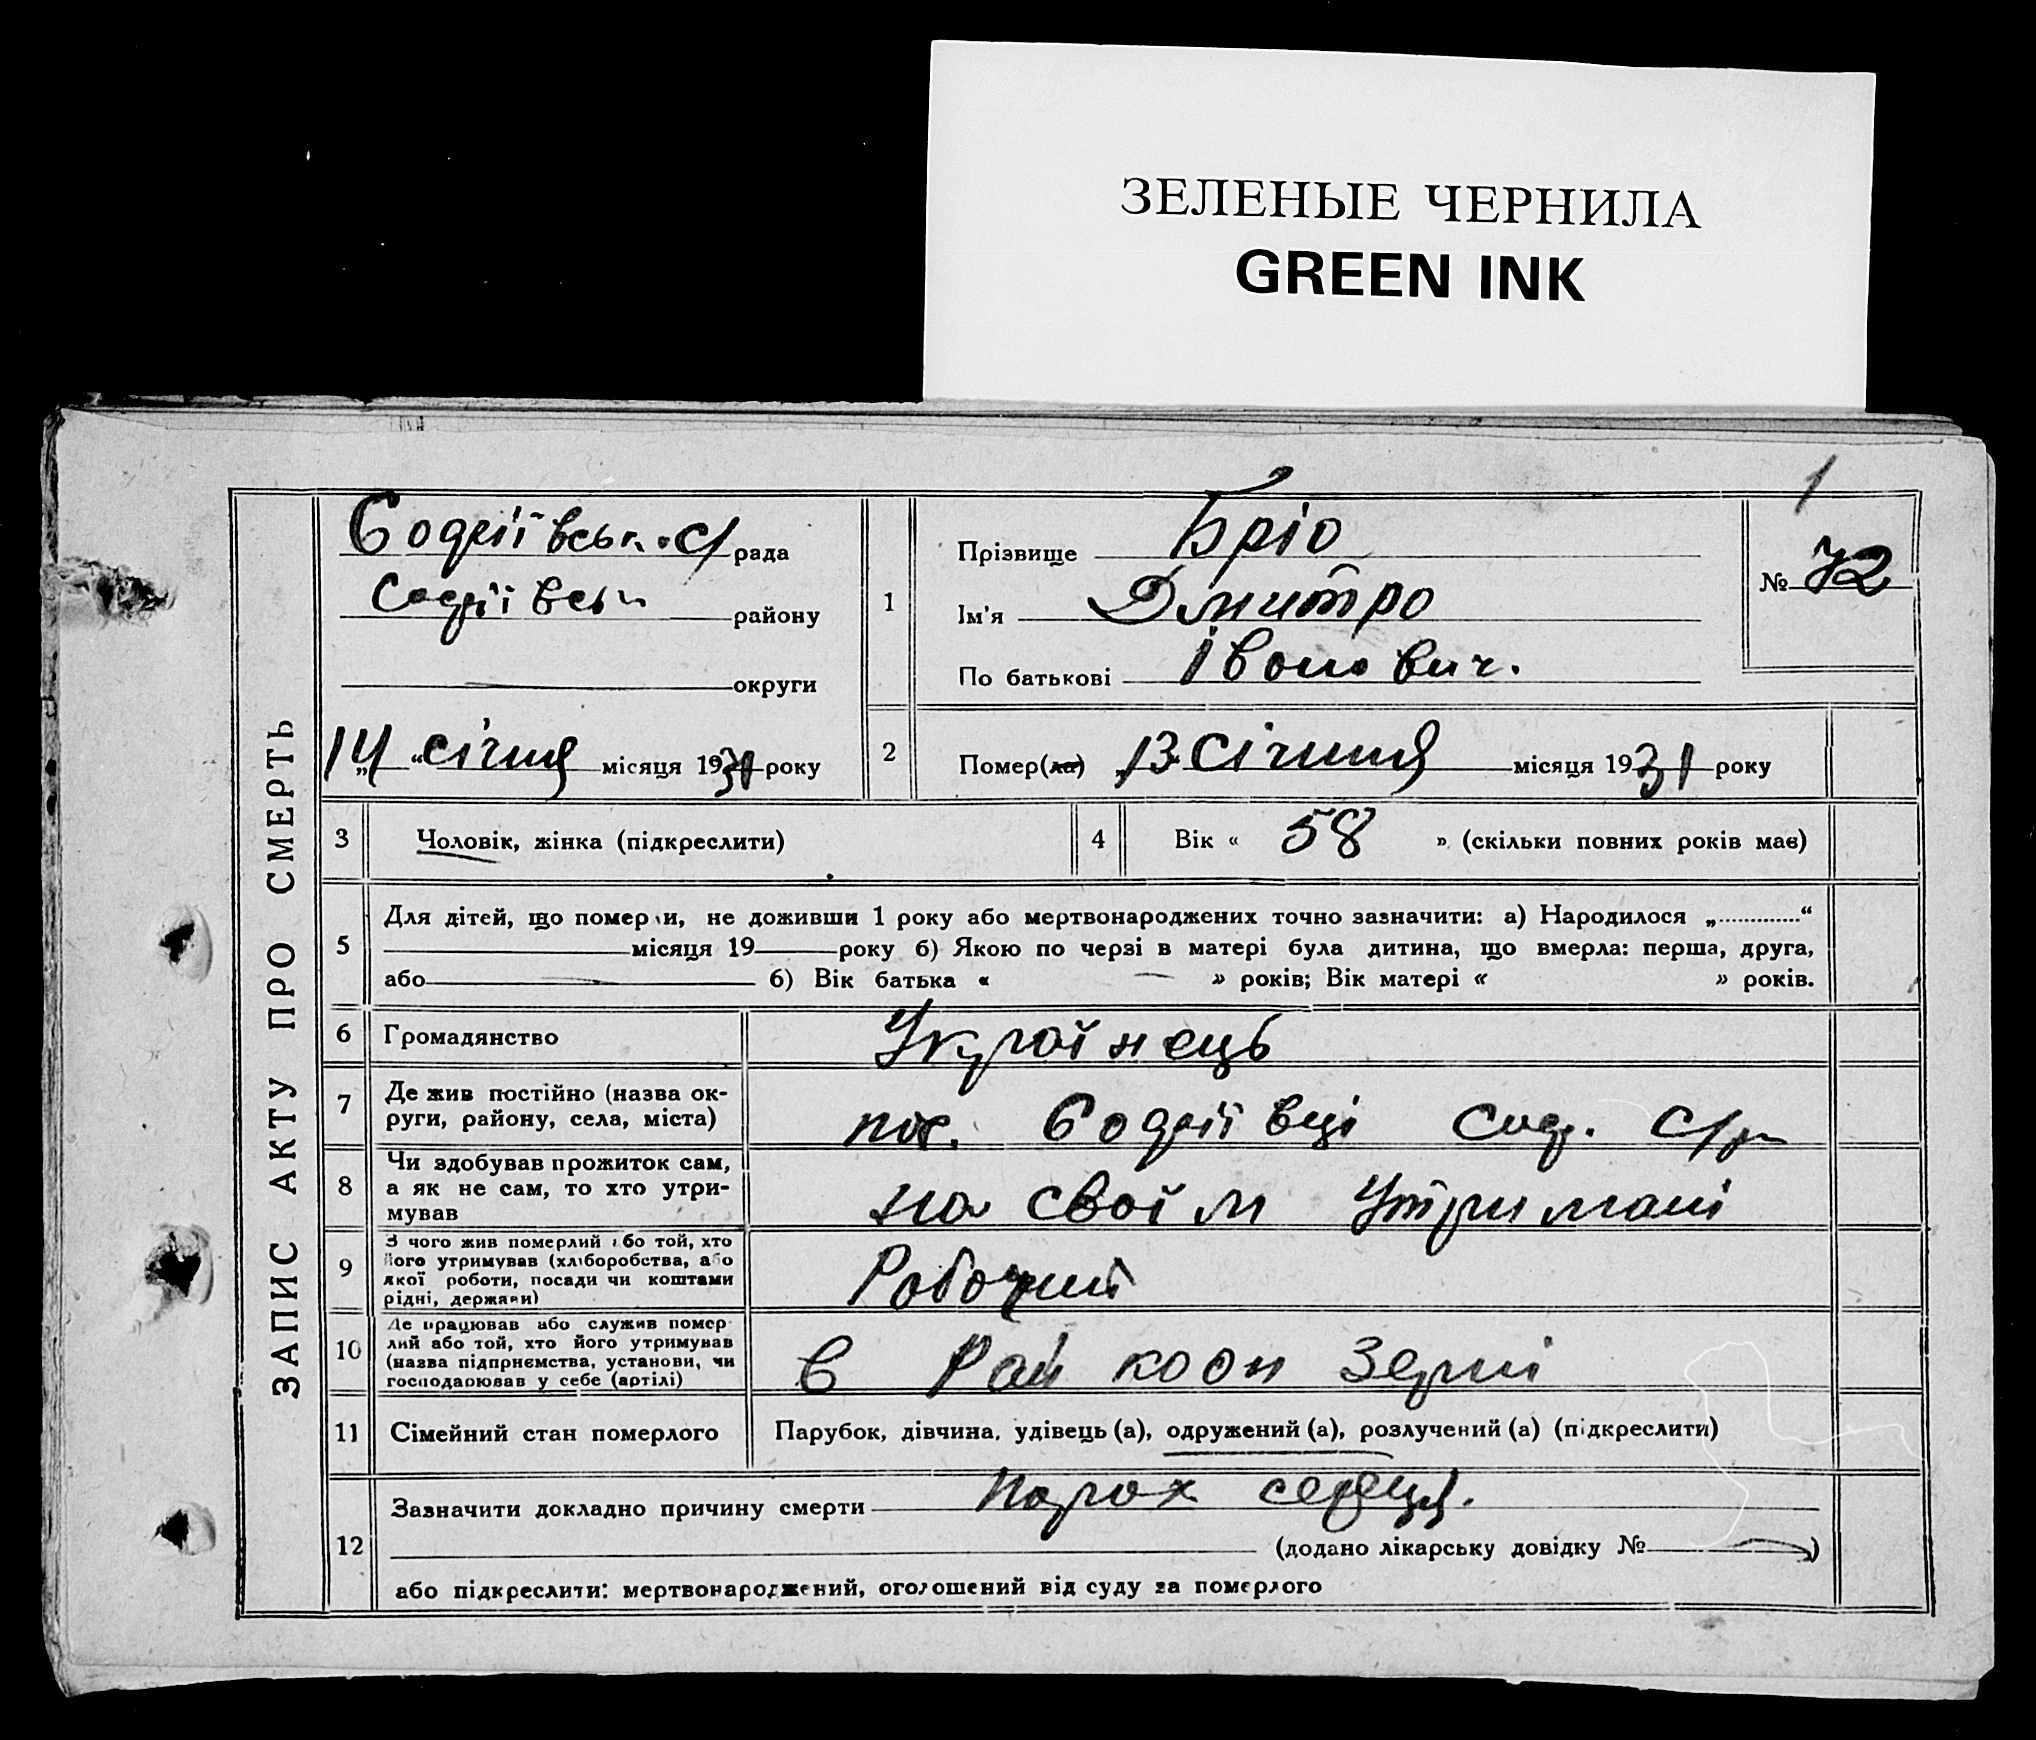 ЗЕЛЕНЫЕ ЧЕРНИЛА
GREEN INK
1
ЗАПИС АКТУ ПРО СМЕРТЬ
с/рада
району
округи
„14“ січня місяця 1931 року
1
Прізвище Бріо
Ім'я Дмитро
По батькові Іванович.
№ 72
2
Помер(ла) „13 січння місяця 1931 року
3
Чоловік, жінка (підкреслити)
4
Вік « 58 » (скільки повних років має)
5
Для дітей, що померли, не доживши 1 року або мертвонароджених точно зазначити: а) Народилося „............“
місяця 19 року б) Якою по черзі в матері була дитина, що вмерла: перша, друга,
або б) Вік батька « — » років; Вік матері « » років.
6
Громадянство
Українець
7
Де жив постійно (назва ок-
руги, району, села, міста)
пос.
8
Чи здобував прожиток сам,
а як не сам, то хто утри-
мував
на своїм утримані
9
З чого жив померлий або той, хто
його утримував (хліборобства, або
якої роботи, посади чи коштами
рідні, держави)
Робочий
10
Де працював або служив помер-
лий або той, хто його утримував
(назва підприємства, установи, чи
господарював у себе (артілі)
в Рай коон Зерні
11
Сімейний стан померлого
Парубок, дівчина, удівець (а), одружений (а), розлучений (а) (підкреслити)
12
Зазначити докладно причину смерти порох серця.
(додано лікарську довідку № —)
або підкреслити: мертвонароджений, оголошений від суду за померлого